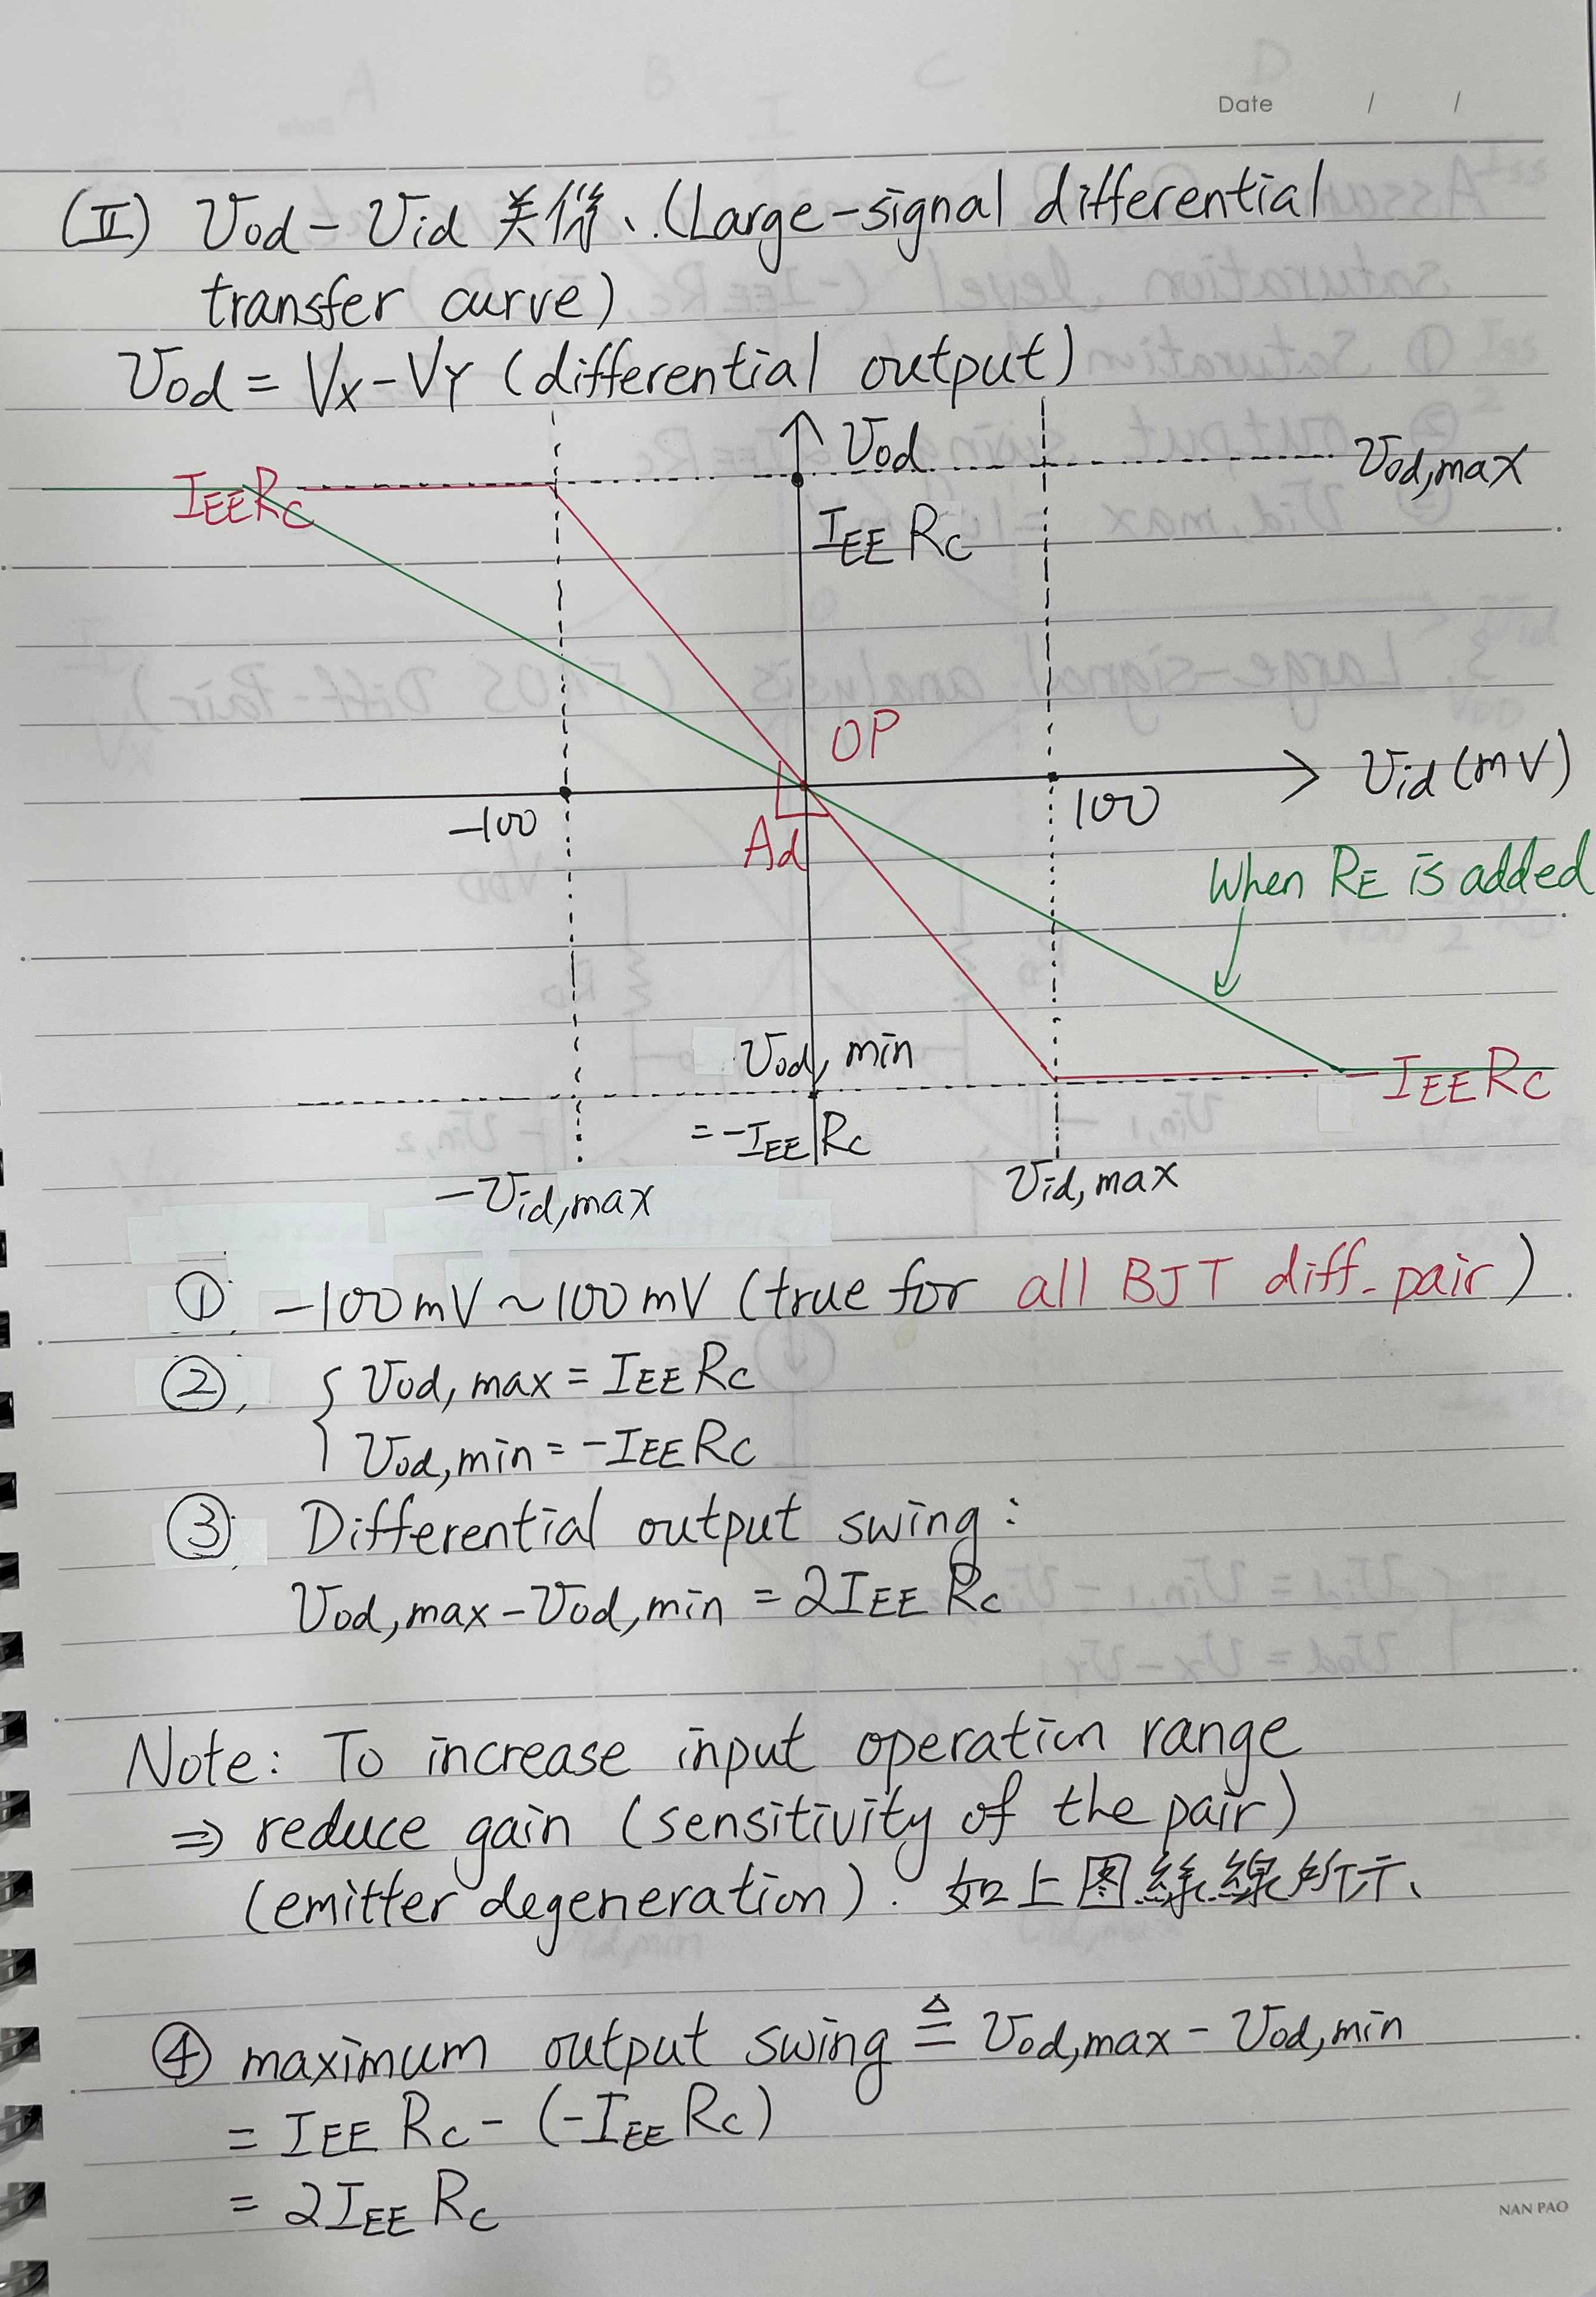 Date / /
(II) Vod - Vid 关係、(Large-signal differential
transfer curve)
Vod = VX - VY (differential output)
Vod
Vod,max
IEERC
IEE RC
OP
Vid (mV)
-100
100
Ad
When RE is added
Vod, min
-IEERC
= -IEE RC
-Vid,max
Vid,max
①. -100mV ~ 100mV (true for all BJT diff-pair).
②. { Vod, max = IEE RC
Vod, min = -IEE RC
③. Differential output swing:
Vod,max - Vod,min = 2IEE RC
Note: To increase input operation range
⇒ reduce gain (sensitivity of the pair)
(emitter degeneration). 如上图綠線所示、
④ maximum output swing ≜ Vod,max - Vod,min
= IEE RC - (-IEE RC)
= 2IEE RC
NAN PAO